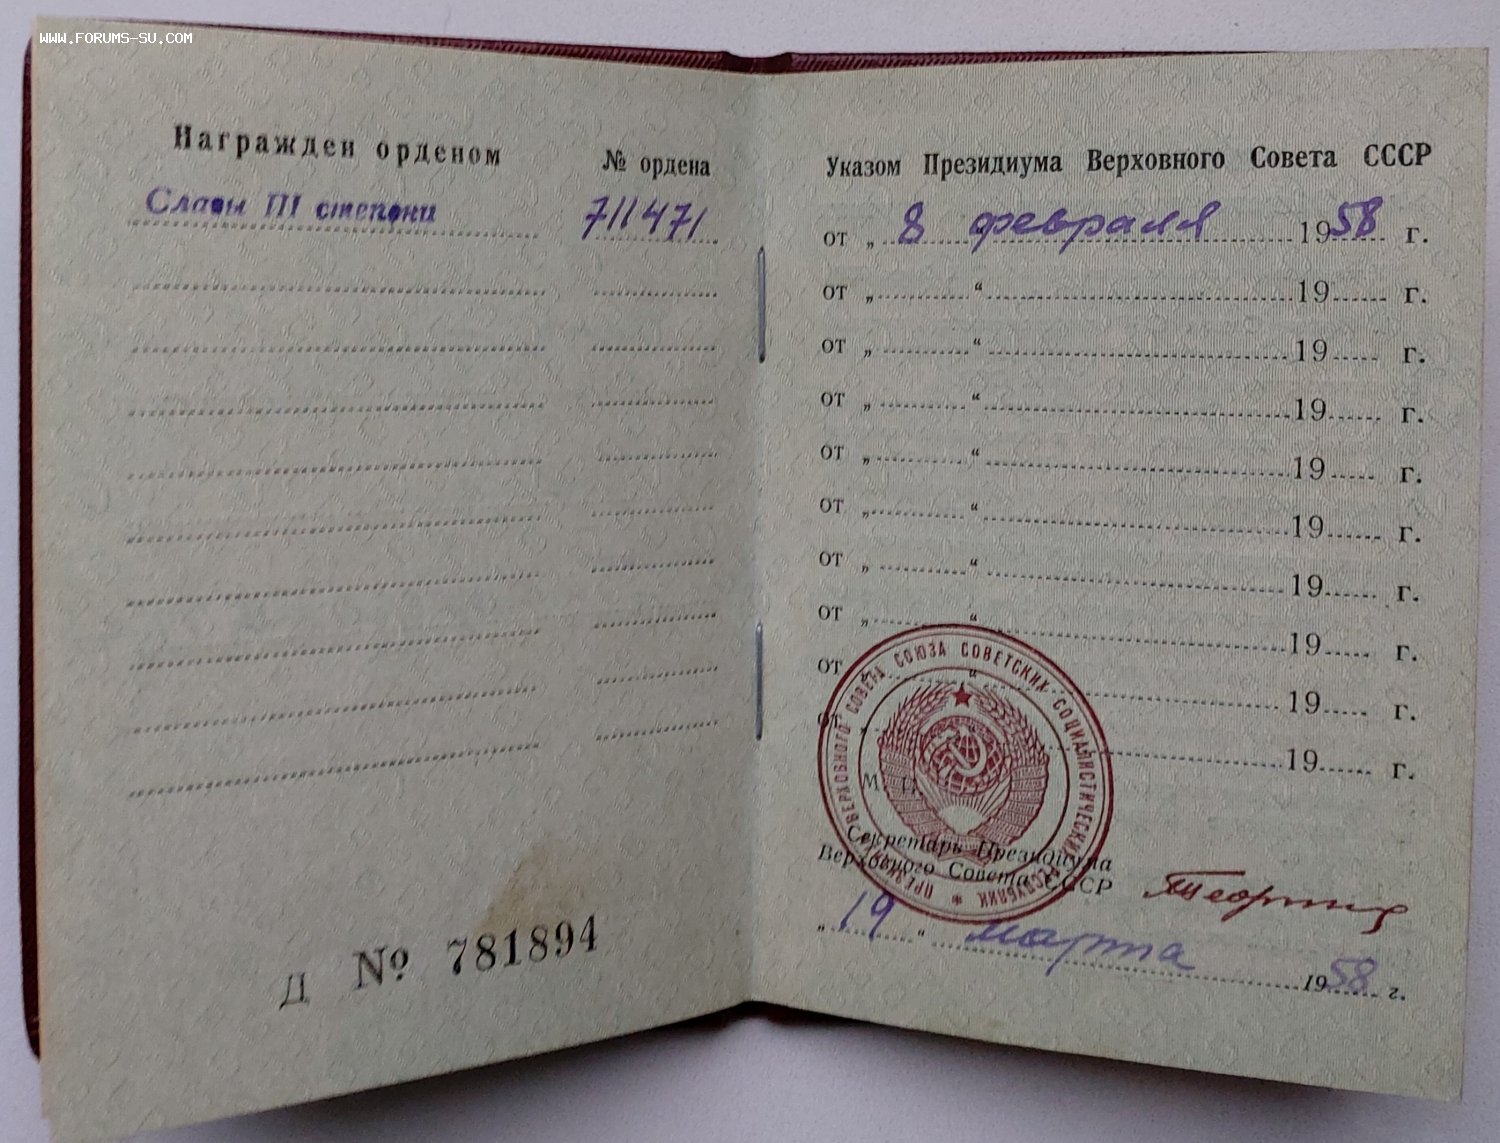 WWW.FORUMS-SU.COM
Награжден орденом
№ ордена
Славы III степени
711471
Д № 781894
Указом Президиума Верховного Совета СССР
от „ 8 “ февраля 1958 г.
от „ “ 19 г.
от „ “ 19 г.
от „ “ 19 г.
от „ “ 19 г.
от „ “ 19 г.
от „ “ 19 г.
от „ “ 19 г.
от „ “ 19 г.
от „ “ 19 г.
М. П.
ПРЕЗИДИУМ ВЕРХОВНОГО СОВЕТА СОЮЗА СОВЕТСКИХ СОЦИАЛИСТИЧЕСКИХ РЕСПУБЛИК *
Секретарь Президиума
Верховного Совета СССР
„ 19 “ марта 1958 г.